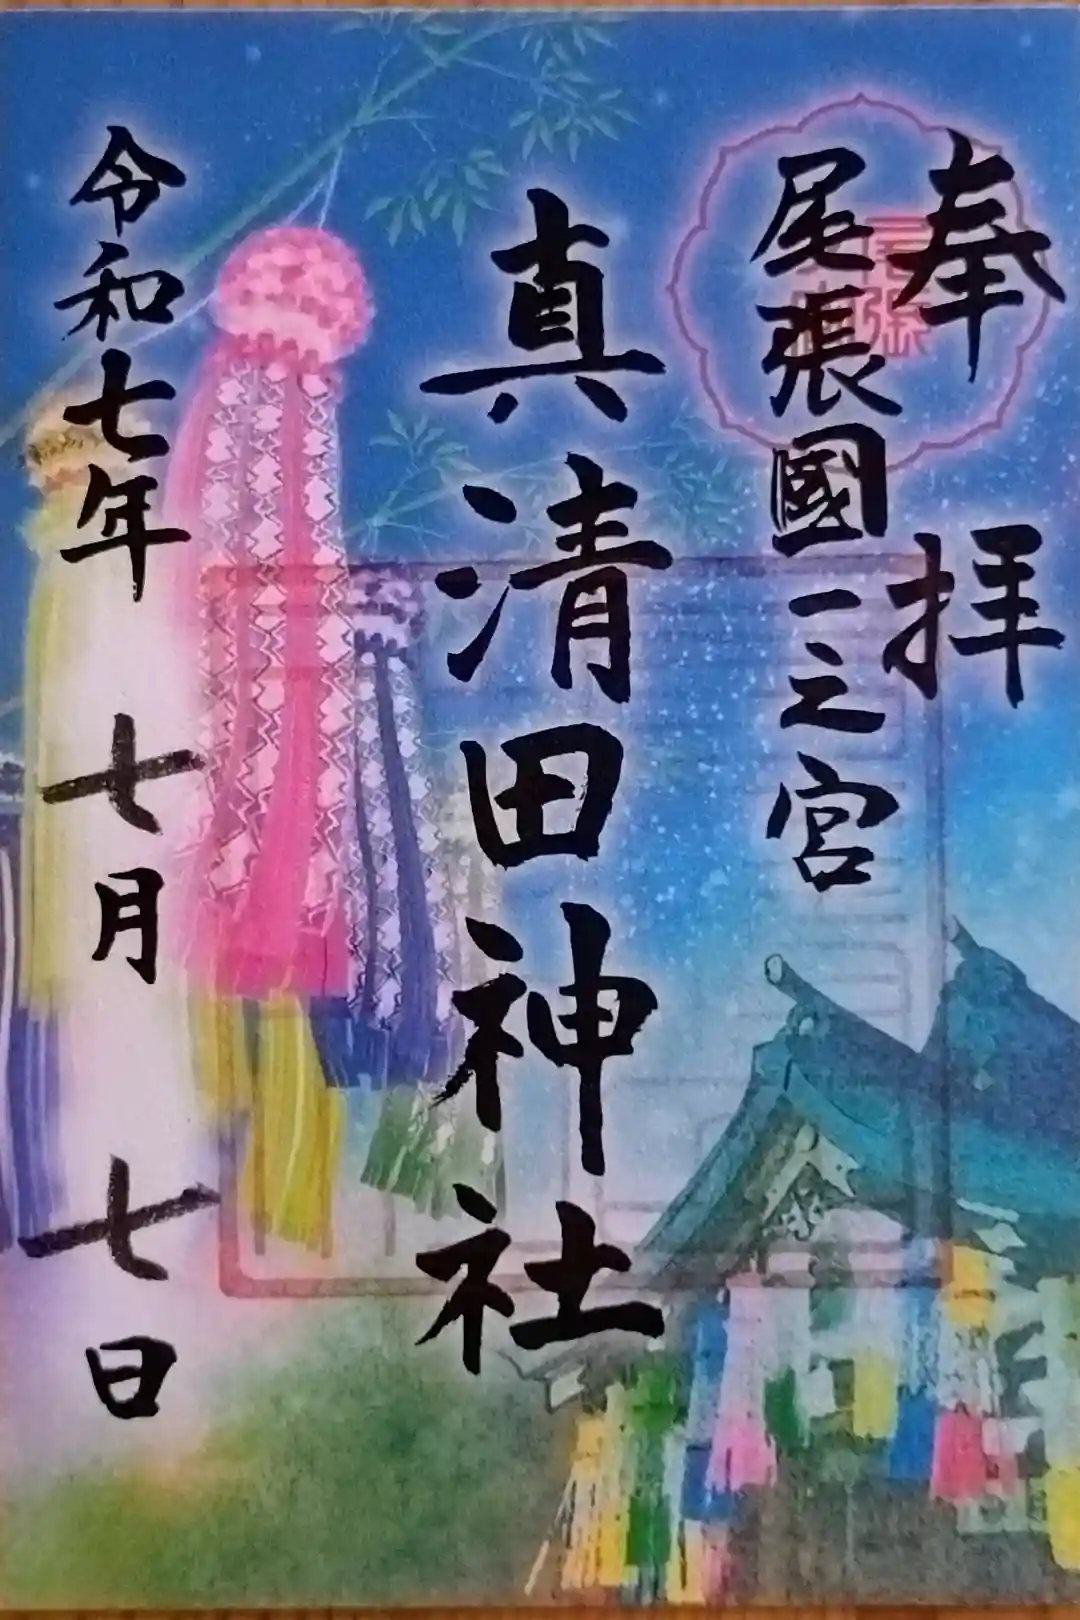 奉拝
尾張國一之宮
真清田神社
令和七年 七月 七日